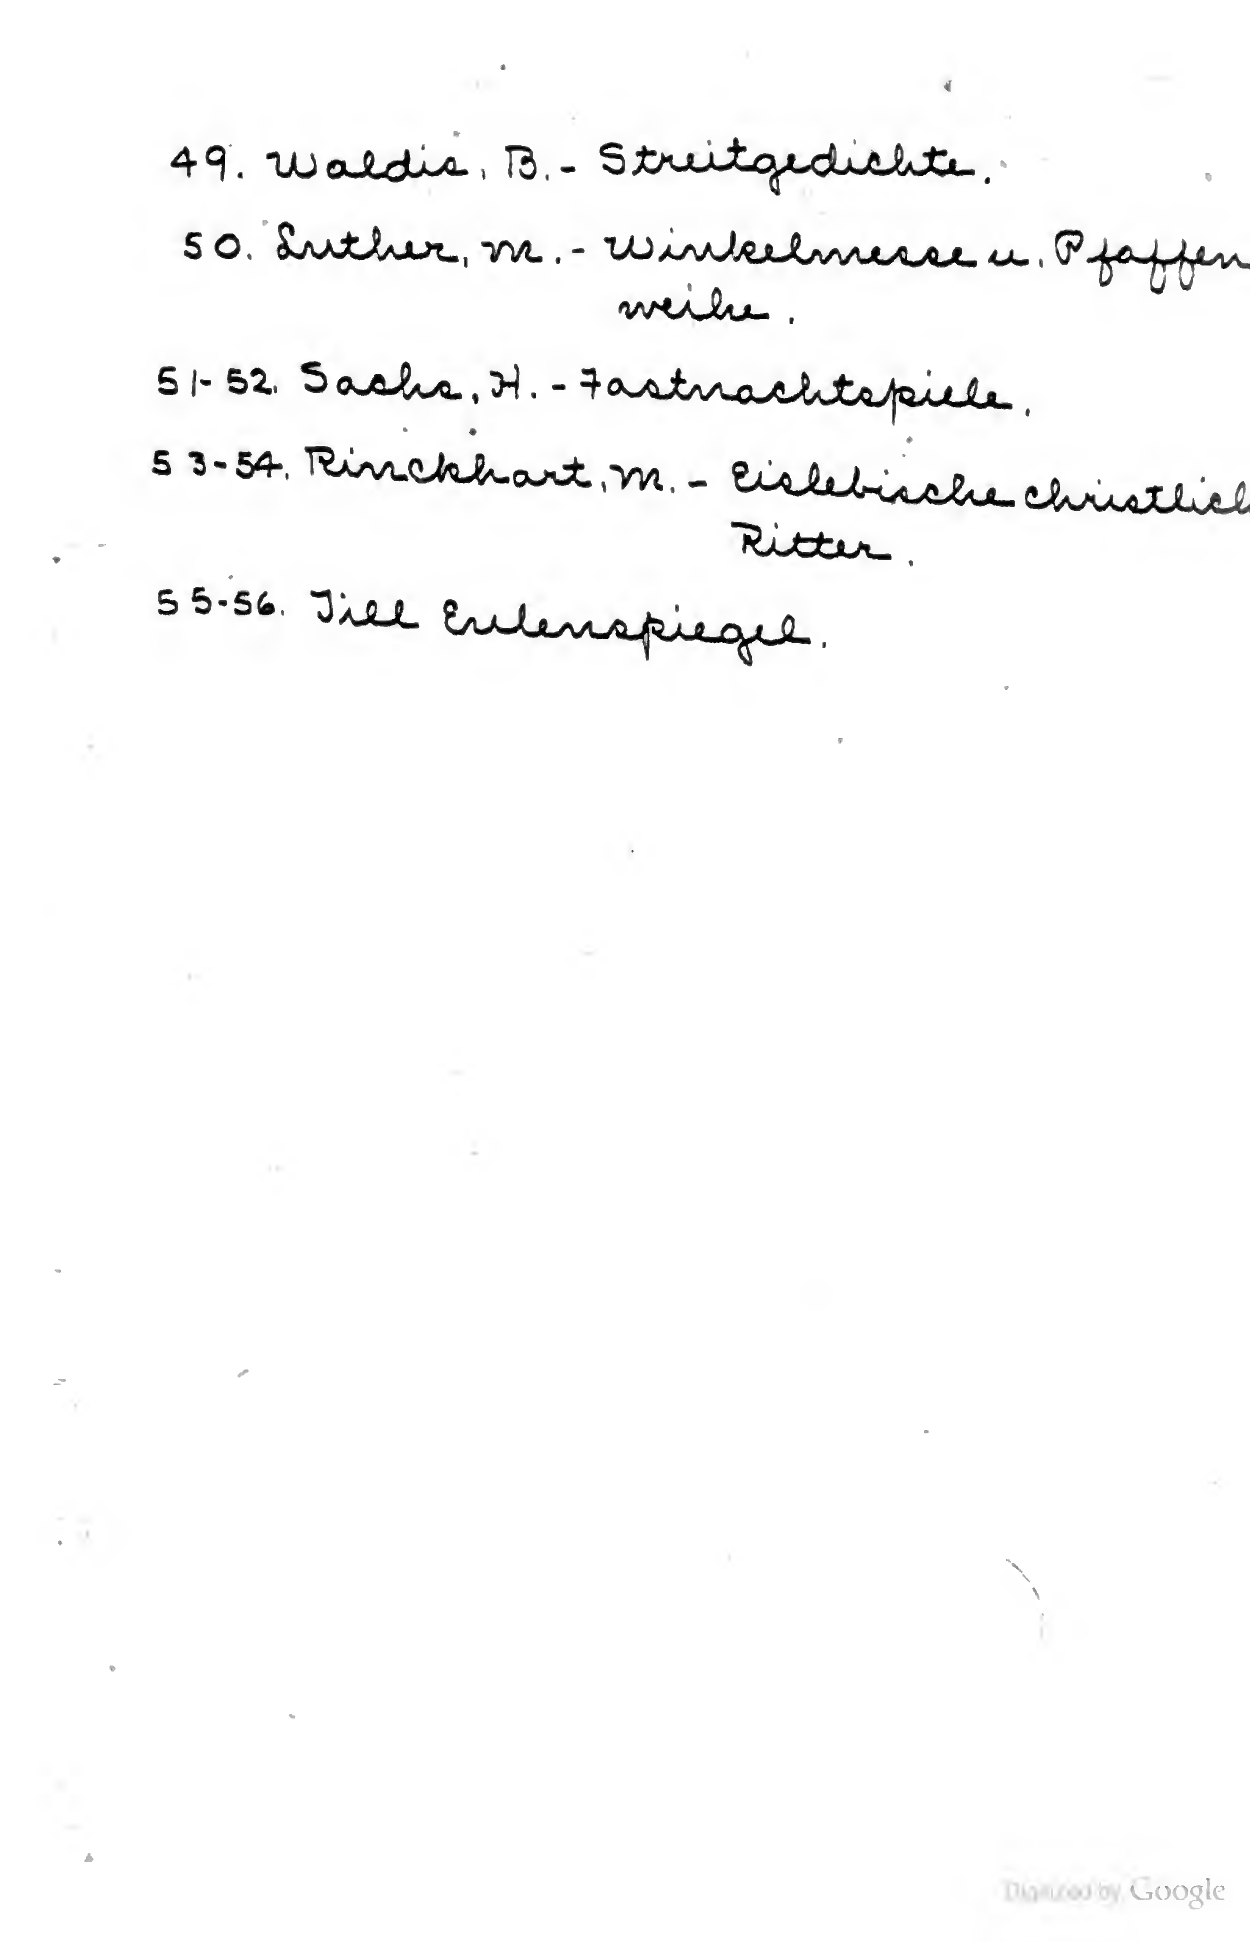 49. Waldis, B. - Streitgedichte.
50. Luther, M. - Winkelmesse u. Pfaffen
weihe.
51-52. Sachs, H. - Fastnachtspiele.
53-54. Rinckhart, M. - Eislebische christlich
Ritter.
55-56. Till Eulenspiegel.
Digitized by Google